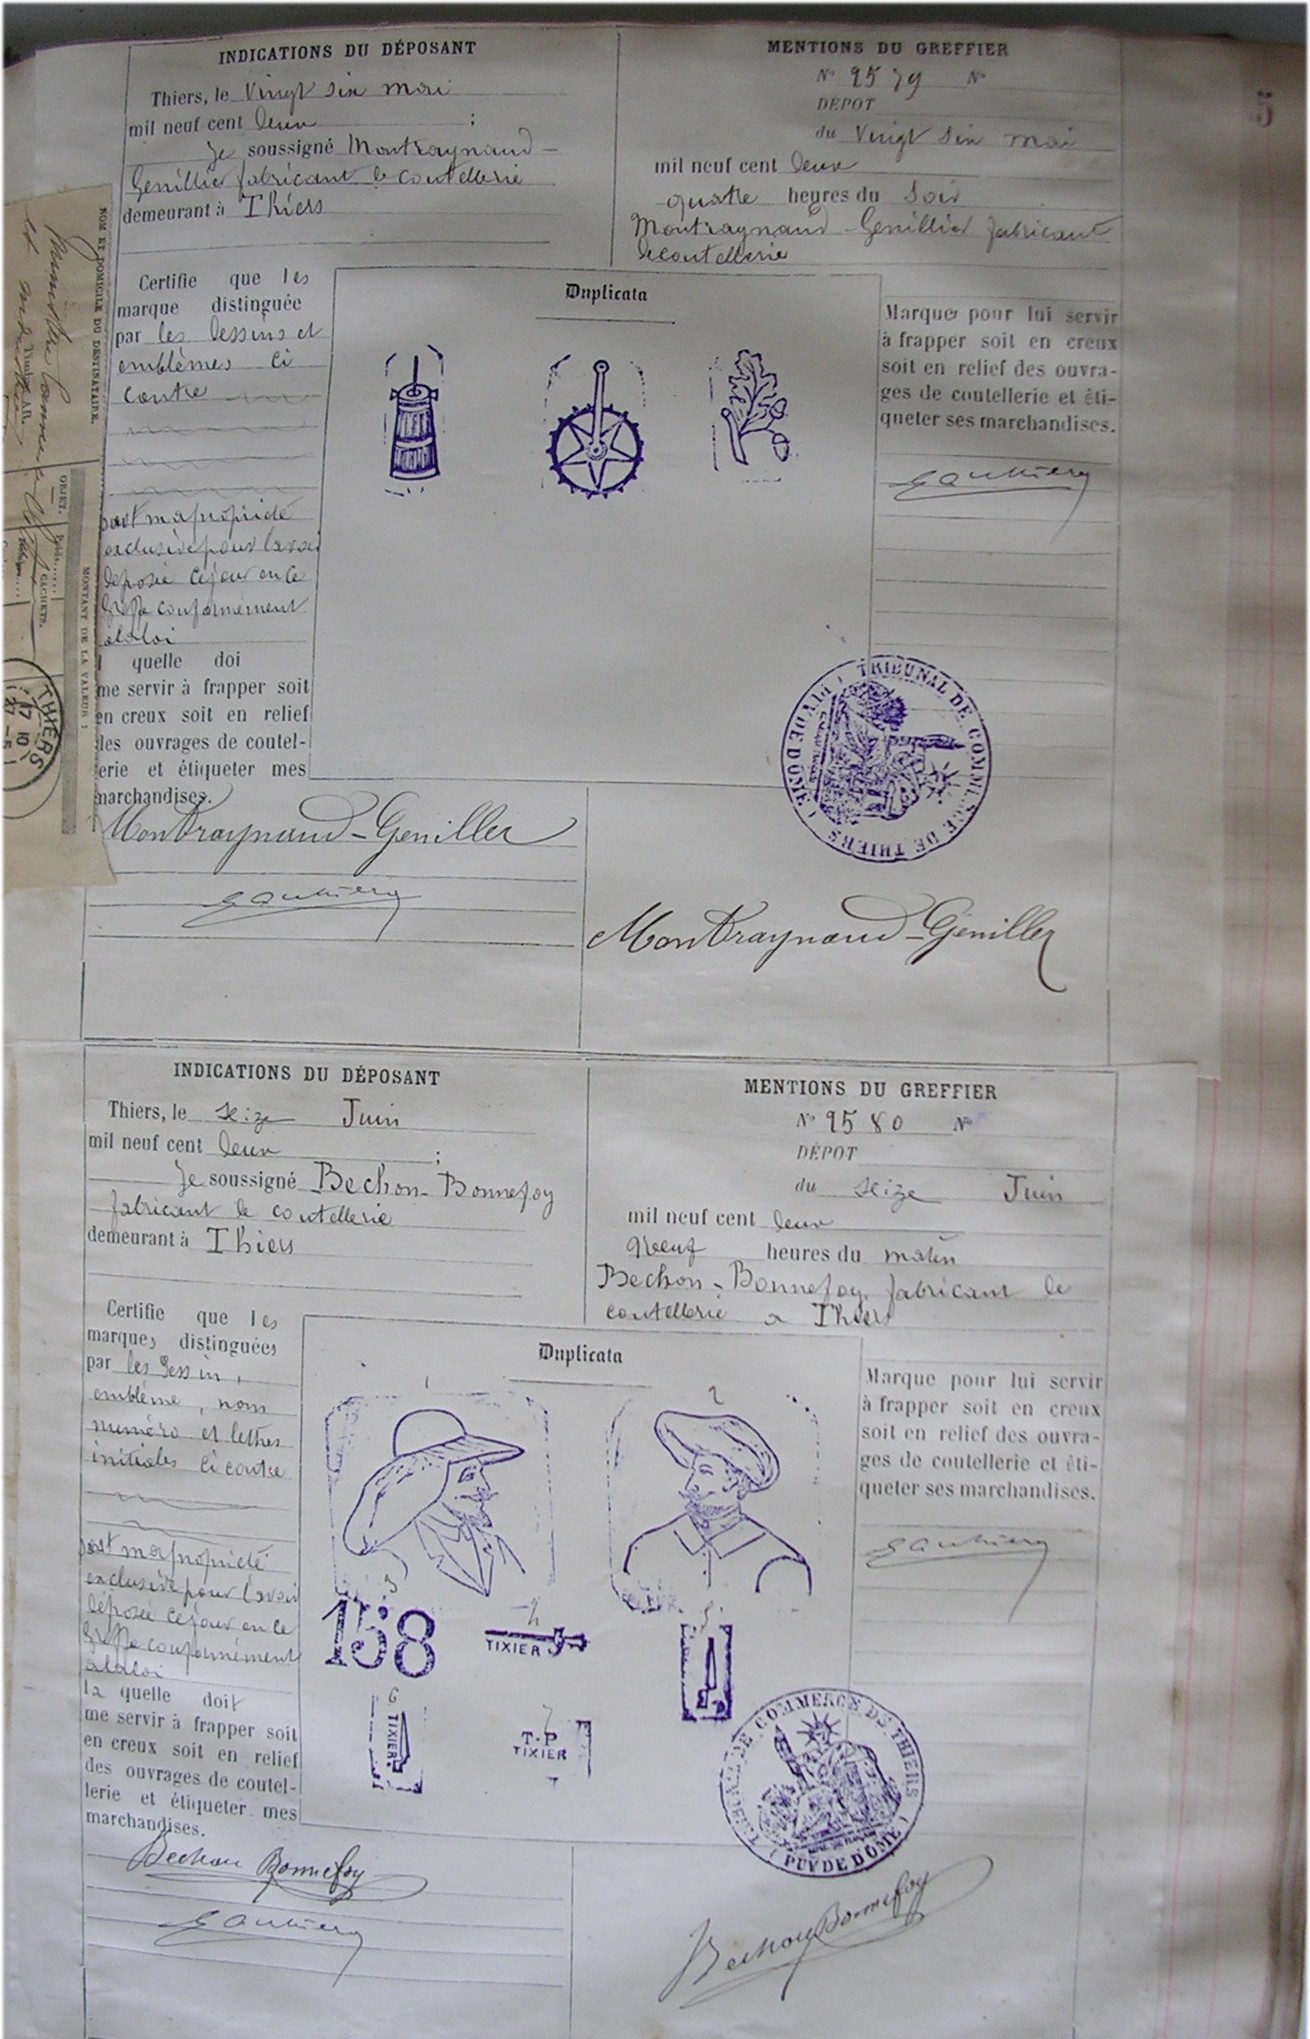 5
INDICATIONS DU DÉPOSANT
Thiers, le Vingt six mai
mil neuf cent deux ;
Je soussigné Montraynaud-
Genillier fabricant de coutellerie
demeurant à Thiers
MENTIONS DU GREFFIER
N° 2579 N°
DÉPOT
du Vingt six mai
mil neuf cent deux
quatre heures du soir
Montraynaud-Genillier fabricant
de coutellerie
Certifie que les
marque distinguée
par les dessins et
emblèmes ci
contre
sont ma propriété
exclusive pour l'avoir
déposée ce jour en ce
Greffe conformément
à la loi
quelle doi
me servir à frapper soit
en creux soit en relief
les ouvrages de coutel-
erie et étiqueter mes
marchandises.
Duplicata
Marques pour lui servir
à frapper soit en creux
soit en relief des ouvra-
ges de coutellerie et éti-
queter ses marchandises.
TRIBUNAL DE COMMERCE DE THIERS (PUY DE DOME)
Montraynaud-Geniller
Montraynaud-Géniller
NOM ET DOMICILE DU DESTINATAIRE.
OBJET.
CACHETS.
MONTANT DE LA VALEUR :
THIERS
INDICATIONS DU DÉPOSANT
Thiers, le seize Juin
mil neuf cent deux ;
Je soussigné Bechon-Bonnefoy
fabricant de coutellerie
demeurant à Thiers
MENTIONS DU GREFFIER
N° 2580 N°
DÉPOT
du seize Juin
mil neuf cent deux
neuf heures du matin
Bechon-Bonnefoy, fabricant de
coutellerie a Thiers
Certifie que les
marques distinguées
par les dessin,
emblème, nom
numéro et lettres
initiales ci contre
sont ma propriété
exclusive pour l'avoir
déposée ce jour en ce
Greffe conformément
à la loi
la quelle doit
me servir à frapper soit
en creux soit en relief
des ouvrages de coutel-
lerie et étiqueter mes
marchandises.
Duplicata
1 2
3 4 5
158
TIXIER
6 7
TIXIER
T.P
TIXIER
Marque pour lui servir
à frapper soit en creux
soit en relief des ouvra-
ges de coutellerie et éti-
queter ses marchandises.
TRIBUNAL DE COMMERCE DE THIERS
(PUY DE DOME)
Bechon Bonnefoy
Bechon Bonnefoy